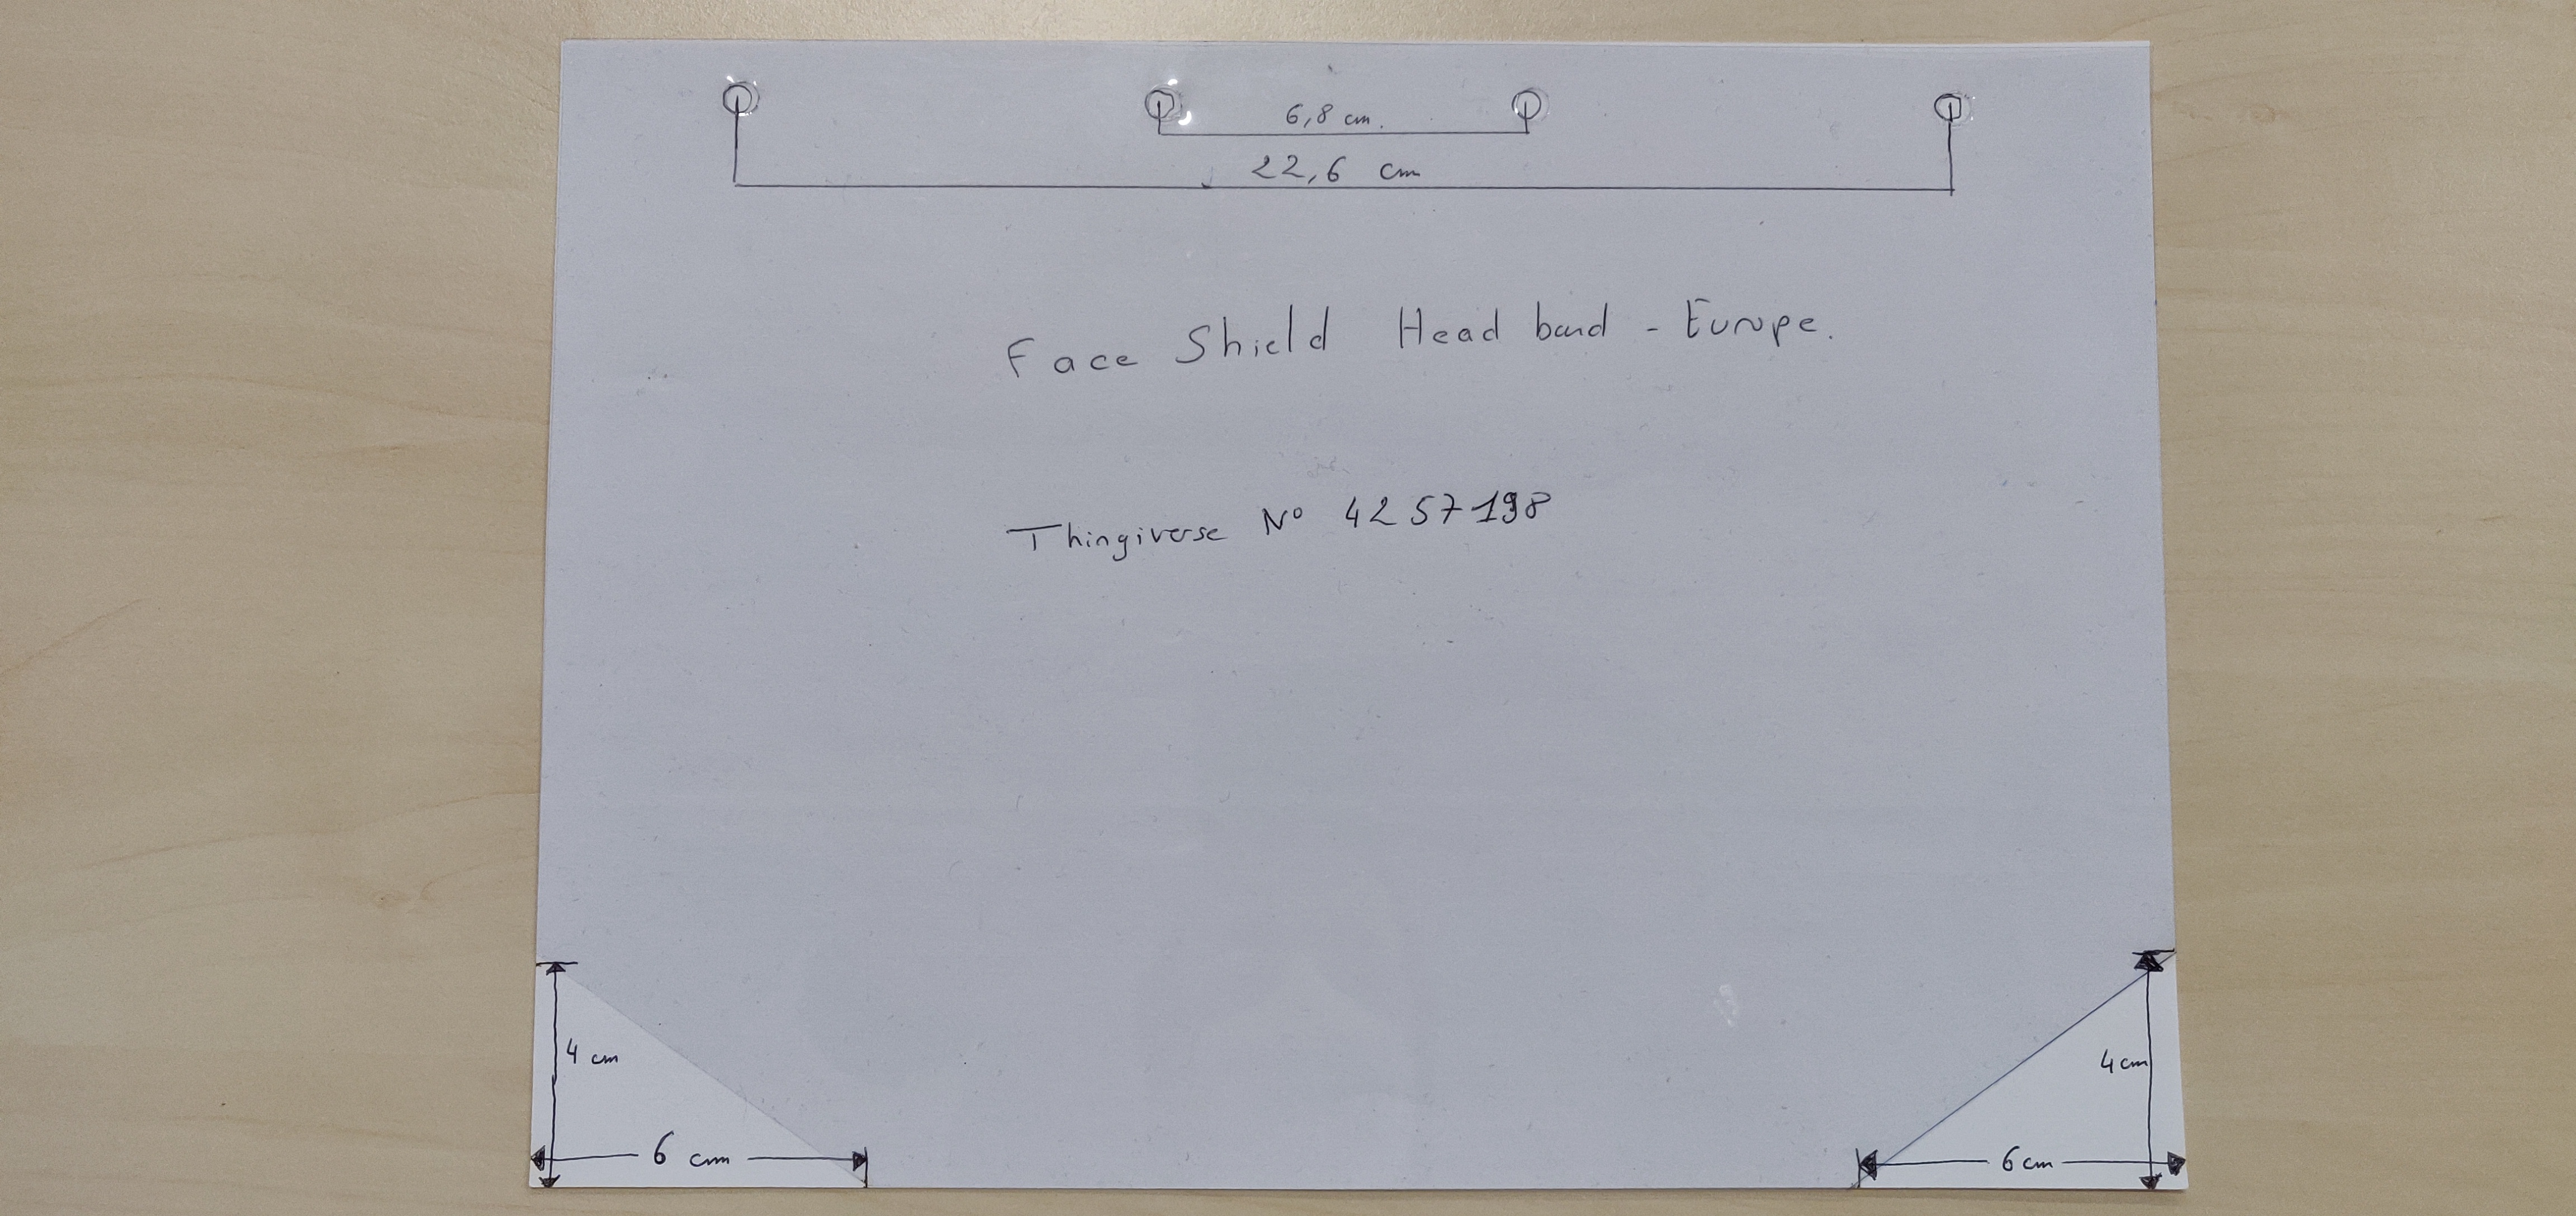 6,8 cm.
22,6 cm
Face Shield Head band - Europe.
Thingiverse Nº 4257198
4 cm
4 cm
6 cm
6 cm